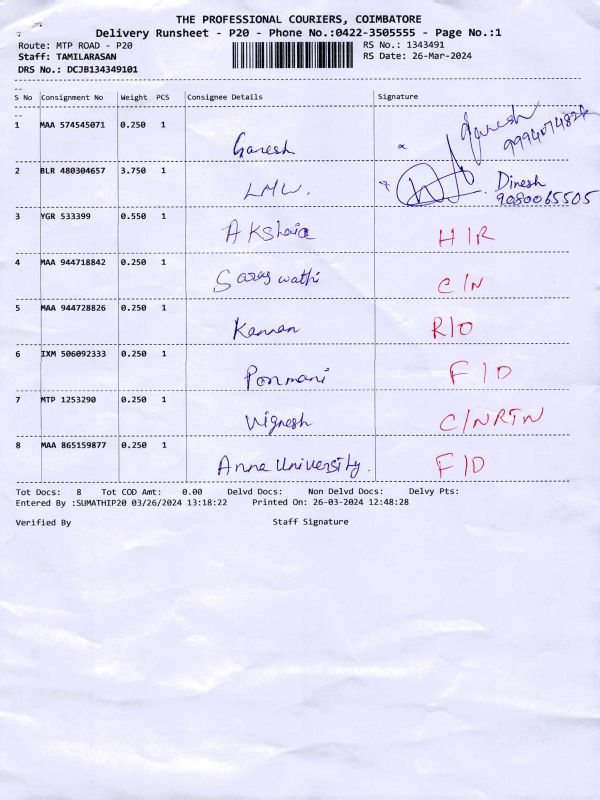 THE PROFESSIONAL COURIERS, COIMBATORE
Delivery Runsheet - P20 - Phone No.:0422-3505555 - Page No.:1
Route: MTP ROAD - P20 RS No.: 1343491
Staff: TAMILARASAN RS Date: 26-Mar-2024
DRS No.: DCJB134349101
S No Consignment No Weight PCS Consignee Details Signature
1 MAA 574545071 0.250 1 Ganesh Ganesh
2 BLR 480304657 3.750 1 LMW. Dinesh
9080065505
3 YGR 533399 0.550 1 Akshaia H/R
4 MAA 944718842 0.250 1 Saraswathi C/N
5 MAA 944728826 0.250 1 Kannan R/O
6 IXM 506092333 0.250 1 Ponmani F/D
7 MTP 1253290 0.250 1 Vignesh C/NRTN
8 MAA 865159877 0.250 1 Anna University. F/D
Tot Docs: 8 Tot COD Amt: 0.00 Delvd Docs: Non Delvd Docs: Delvy Pts:
Entered By :SUMATHIP20 03/26/2024 13:18:22 Printed On: 26-03-2024 12:48:28
Verified By Staff Signature